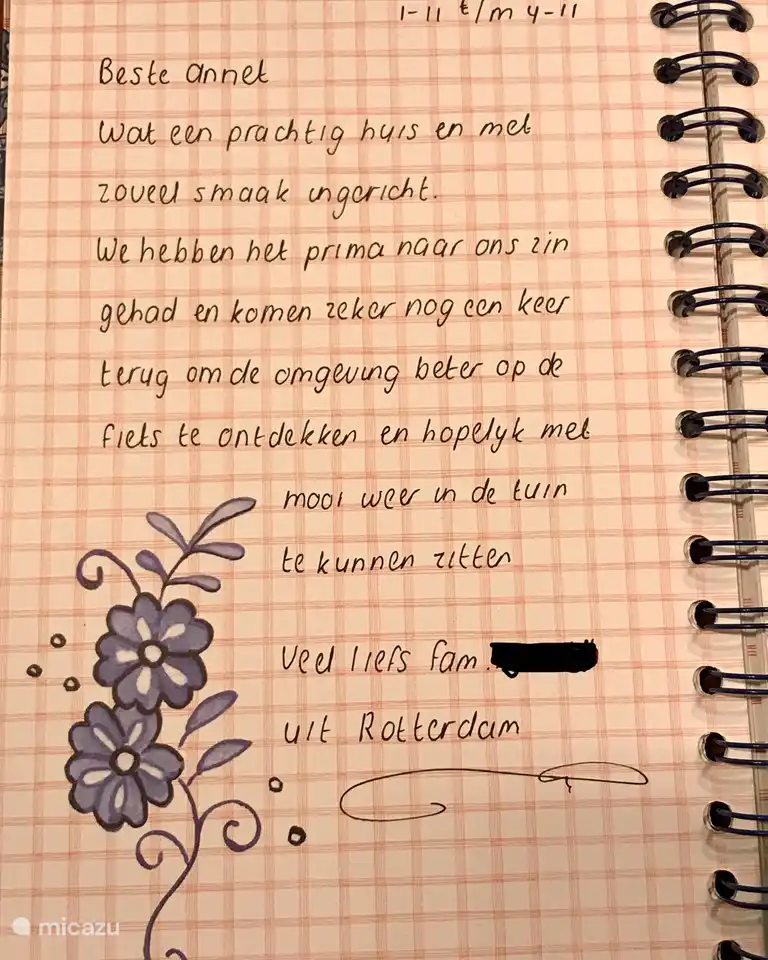 1-11 t/m 4-11
Beste Annet
Wat een prachtig huis en met
zoveel smaak ingericht.
We hebben het prima naar ons zin
gehad en komen zeker nog een keer
terug om de omgeving beter op de
fiets te ontdekken en hopelyk met
mooi weer in de tuin
te kunnen zitten
Veel liefs fam.
uit Rotterdam
micazu